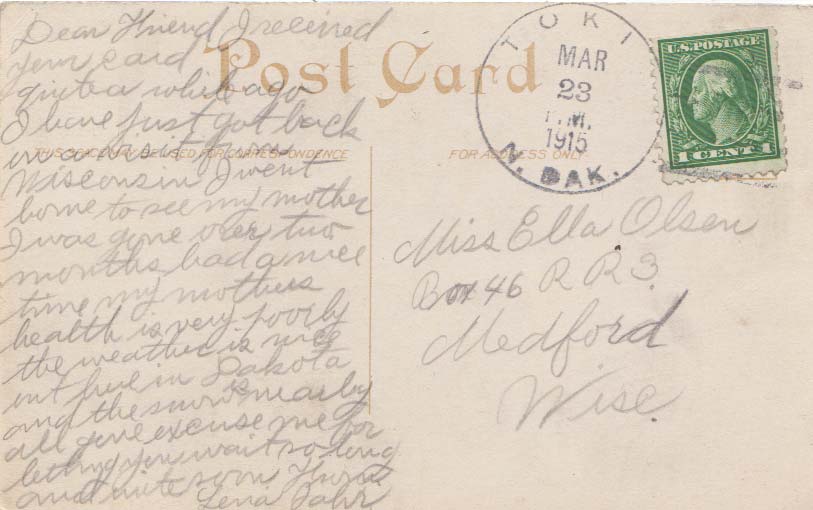 Dear Friend I received
your card
quite a while ago
I have just got back
on a visit from
Wisconsin I went
home to see my mother
I was gone over two
months had a nice
time my mothers
health is very poorly
the weather is nice
in Dakota
and the snow is nearby
all gone excuse me for
letting you wait so long
and write soon
Lena
Post Card
THIS SPACE MAY BE USED FOR CORRESPONDENCE
FOR ADDRESS ONLY
TOKI
MAR
23
P.M.
1915
N. DAK.
U.S. POSTAGE
1 CENT 1
Miss Ella Olsen
Box 46 R R 3
Medford
Wisc.